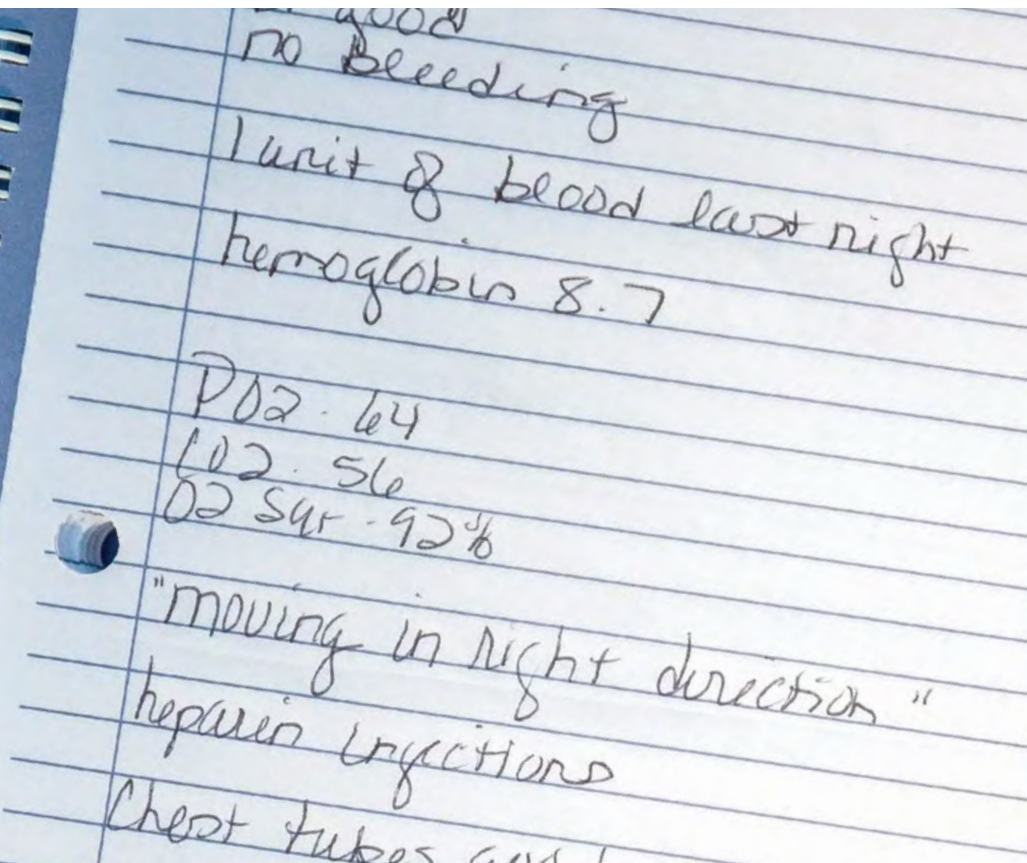 good
no Bleeding
1 unit of blood last night
hemoglobin 8.7
PO2 - 64
CO2 - 56
O2 Sat - 92%
"moving in right direction"
heparin injections
Chest tubes